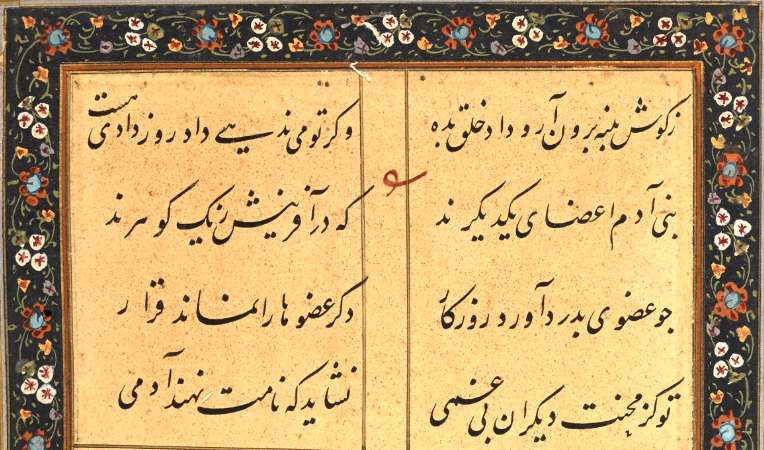 زکوش پنبه برون آر و داد خلق بده وکر تو می ندهی داد روز دادی هست
بنی آدم اعضای یکدیکرند که در آفرینش زیک کوهرند
جو عضوی بدرد آورد روزکار دکر عضوها را نماند قرار
تو کز محنت دیکران بی غمی نشاید که نامت نهند آدمی